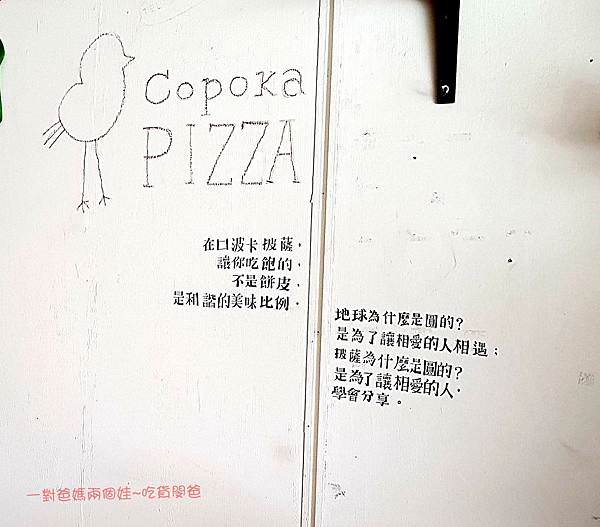 Copoka
PIZZA
在口波卡披薩，
讓你吃飽的，
不是餅皮，
是和諧的美味比例。
地球為什麼是圓的？
是為了讓相愛的人相遇；
披薩為什麼是圓的？
是為了讓相愛的人，
學會分享。
一對爸媽兩個娃~吃貨闆爸